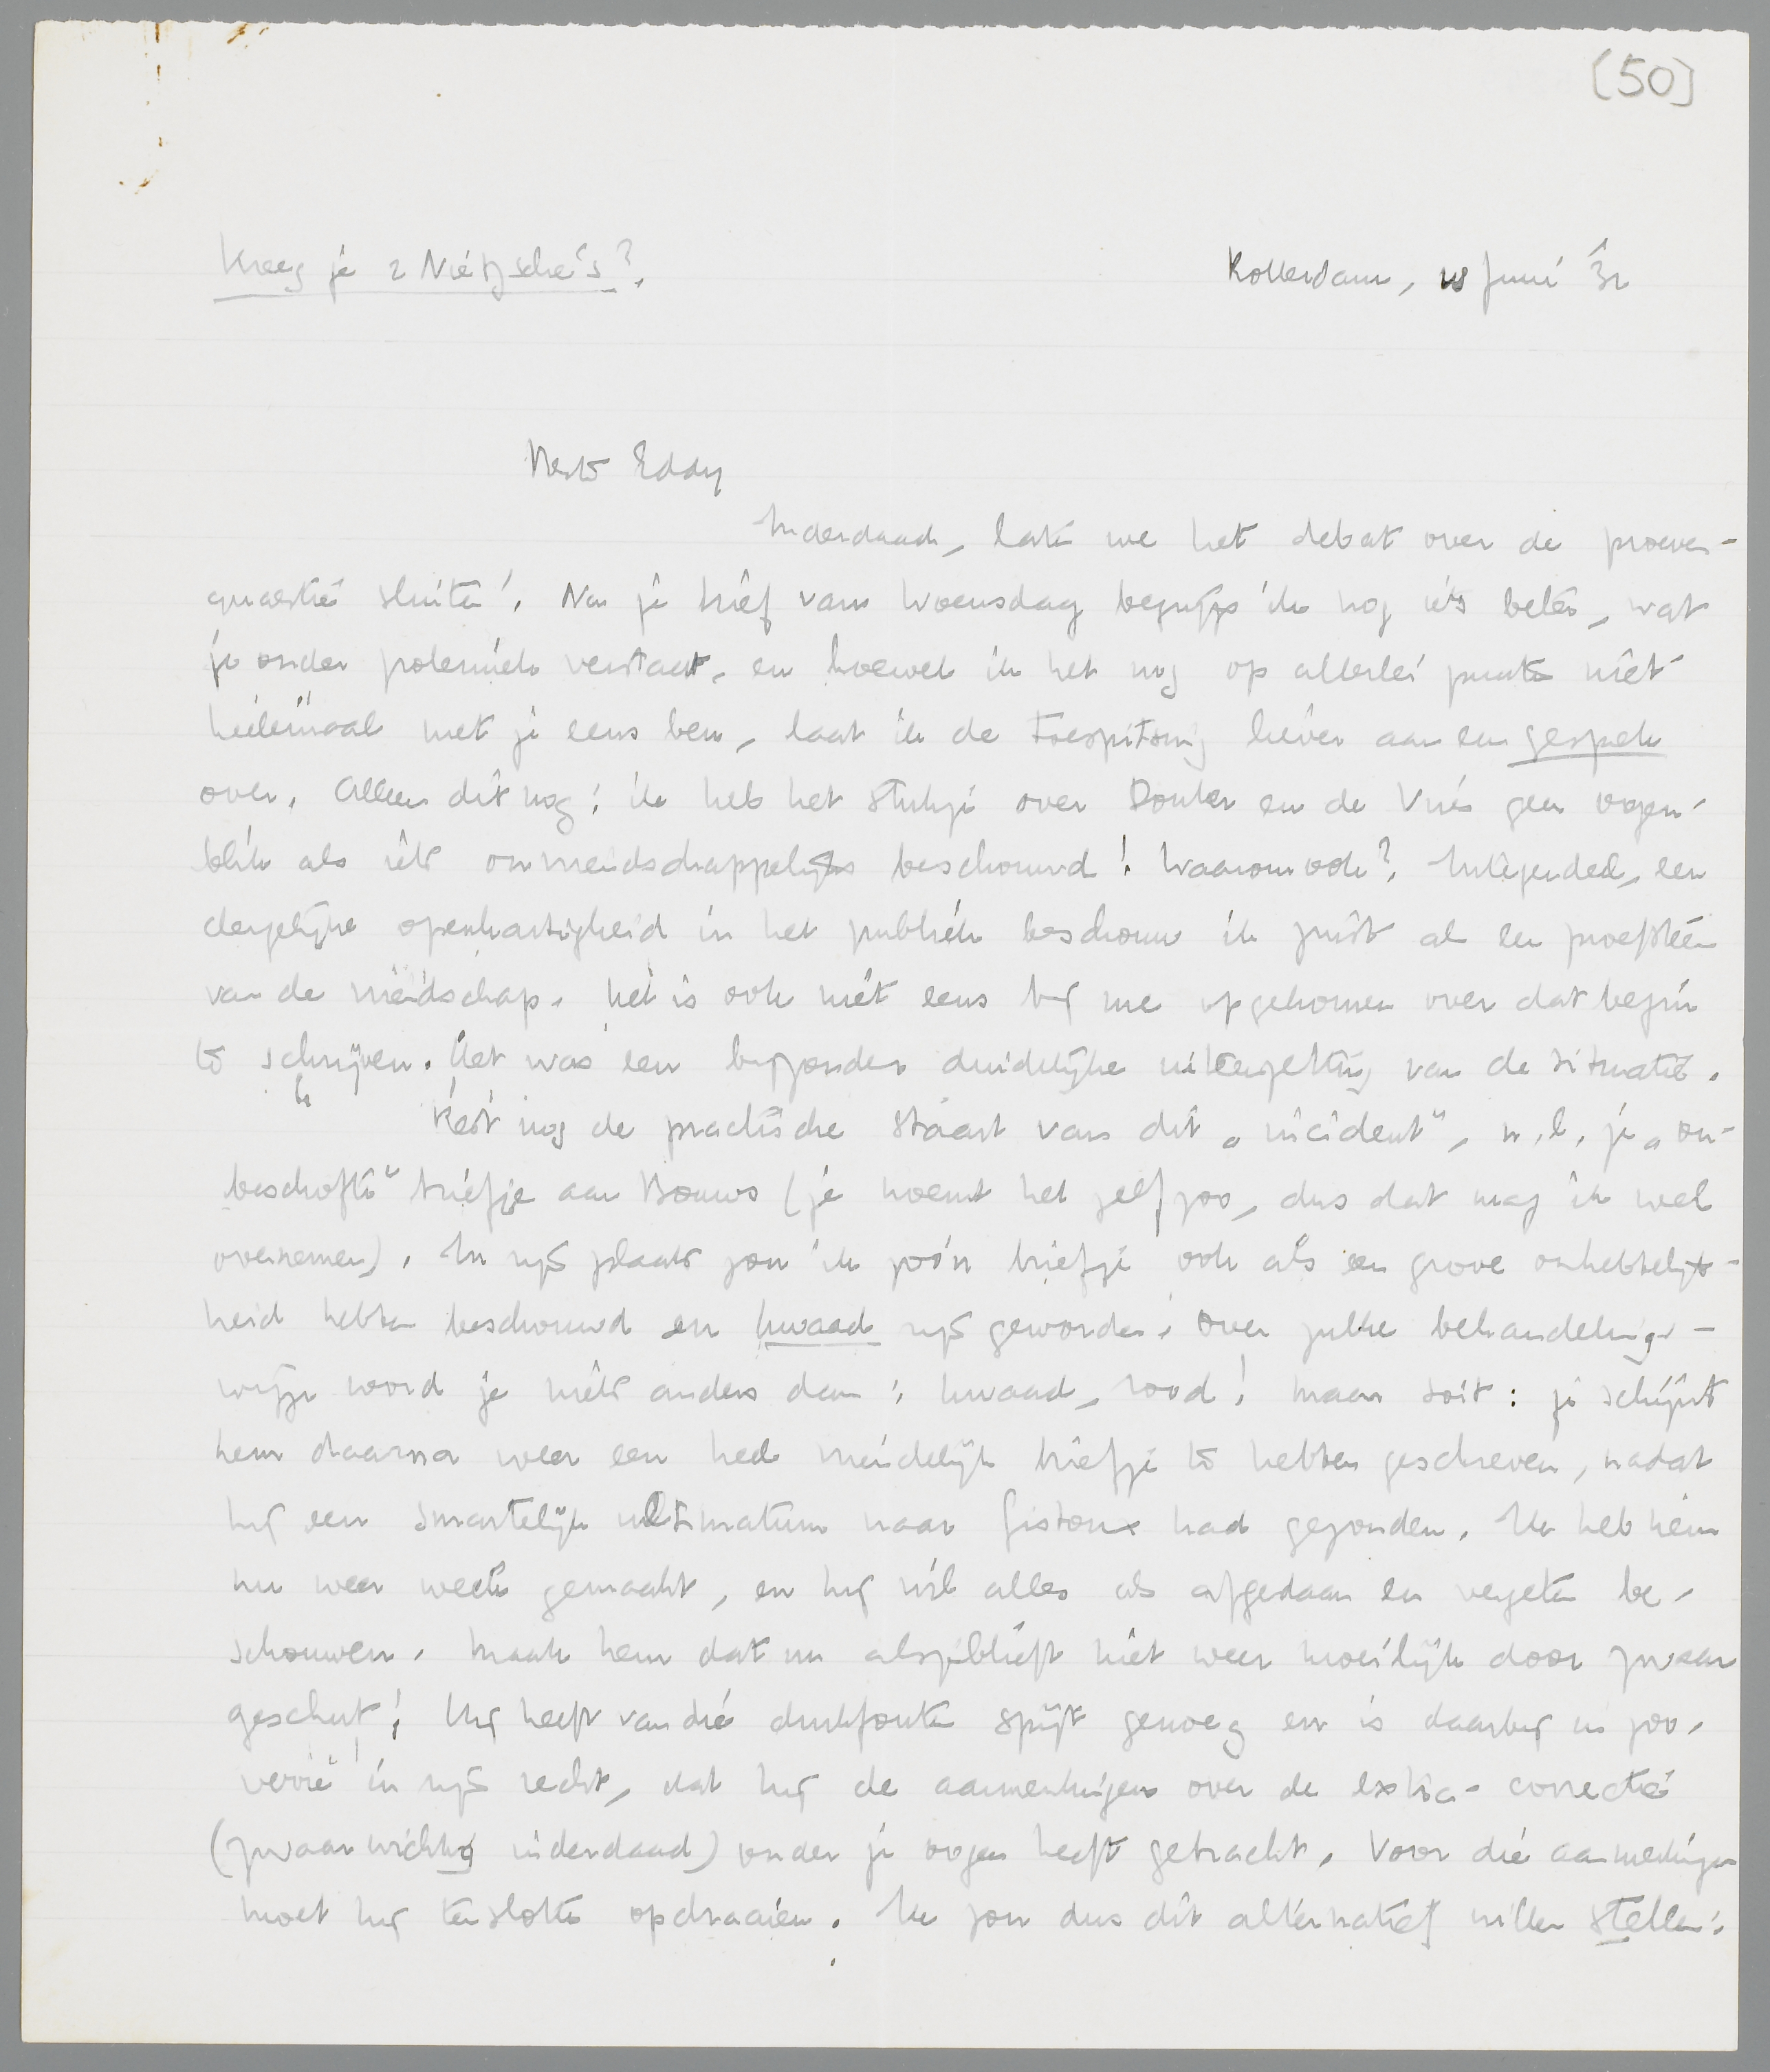 [50]
Kreeg je 2 Nietzsche's?
Rotterdam, 18 Juni '32
Beste Eddy
Inderdaad, laten we het debat over de proeven-
quaestie sluiten! Na je brief van Woensdag begrijp ik nog iets beter, wat
je onder polemiek verstaat, en hoewel ik het nog op allerlei punten niet
heelemaal met je eens ben, laat ik de toespitsing liever aan een gesprek
over. Alleen dit nog: ik heb het stukje over Donker en de Vries geen oogen-
blik als iets onvriendschappelijks beschouwd! Waarom ook? Integendeel, een
dergelijke openhartigheid in het publiek beschouw ik juist als een proefsteen
van de vriendschap. Het is ook niet eens bij me opgekomen over dat begin
te schrijven. Het was een bijzonder duidelijke uiteenzetting van de situatie.
Rest nog de practische staart van dit „incident", n.l. je „on-
beschofte" briefje aan Bouws (je noemt het zelf zoo, dus dat mag ik wel
overnemen). In zijn plaats zou ik zoo'n briefje ook als een grove onhebbelijk-
heid hebben beschouwd en kwaad zijn geworden. Over zulke behandelings-
wijze word je niets anders dan: kwaad, rood! Maar soit: je schijnt
hem daarna weer een heel vriendelijk briefje te hebben geschreven, nadat
hij een smartelijk ultimatum naar Gistoux had gezonden. Ik heb hem
nu weer week gemaakt, en hij wil alles als afgedaan en vergeten be-
schouwen. Maak hem dat nu alsjeblieft niet weer moeilijk door zwaar
geschut! Hij heeft van die drukfouten spijt genoeg en is daarbij in zoo-
verre in zijn recht, dat hij de aanmerkingen over de extra-correctie
(zwaarwichtig inderdaad) onder je oogen heeft gebracht. Voor die aanmerkingen
moet hij tenslotte opdraaien. Ik zou dus dit alternatief willen stellen: